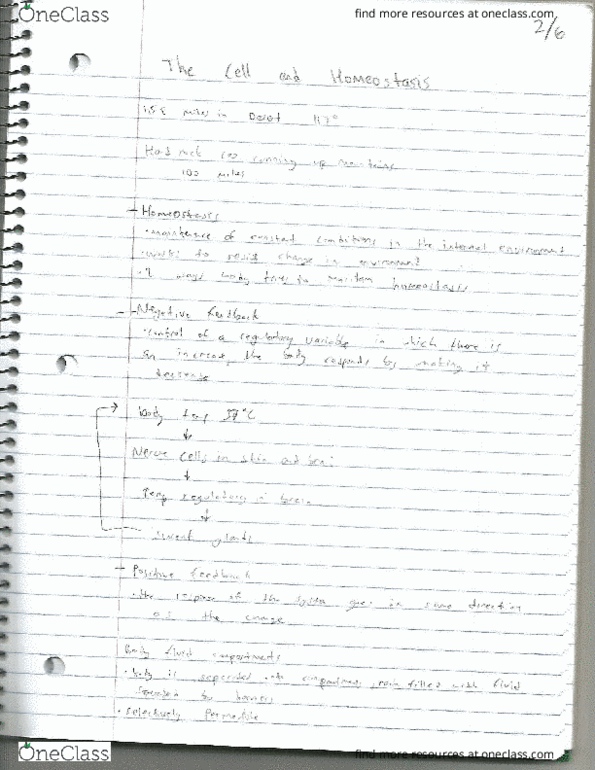 OneClass
find more resources at oneclass.com
2/6
The Cell and Homeostasis
miles in 117°
running up mountains
100 miles
Homeostasis
• maintenance of constant conditions in the internal environment
• works to resist change in environment
• 2 ways body tries to maintain homeostasis
- Negative Feedback
• control of a regulatory variable in which there is
an increase, the body responds by making it
decrease
body temp 37°C
Nerve cells in skin and brain
Temp regulatory in brain
sweat glands
- Positive Feedback
• the response of the system goes in same direction
as the change
Body fluid compartments
• body is separated into compartments, each filled with fluid
separated by barriers
• selectively Permeable
OneClass
find more resources at oneclass.com